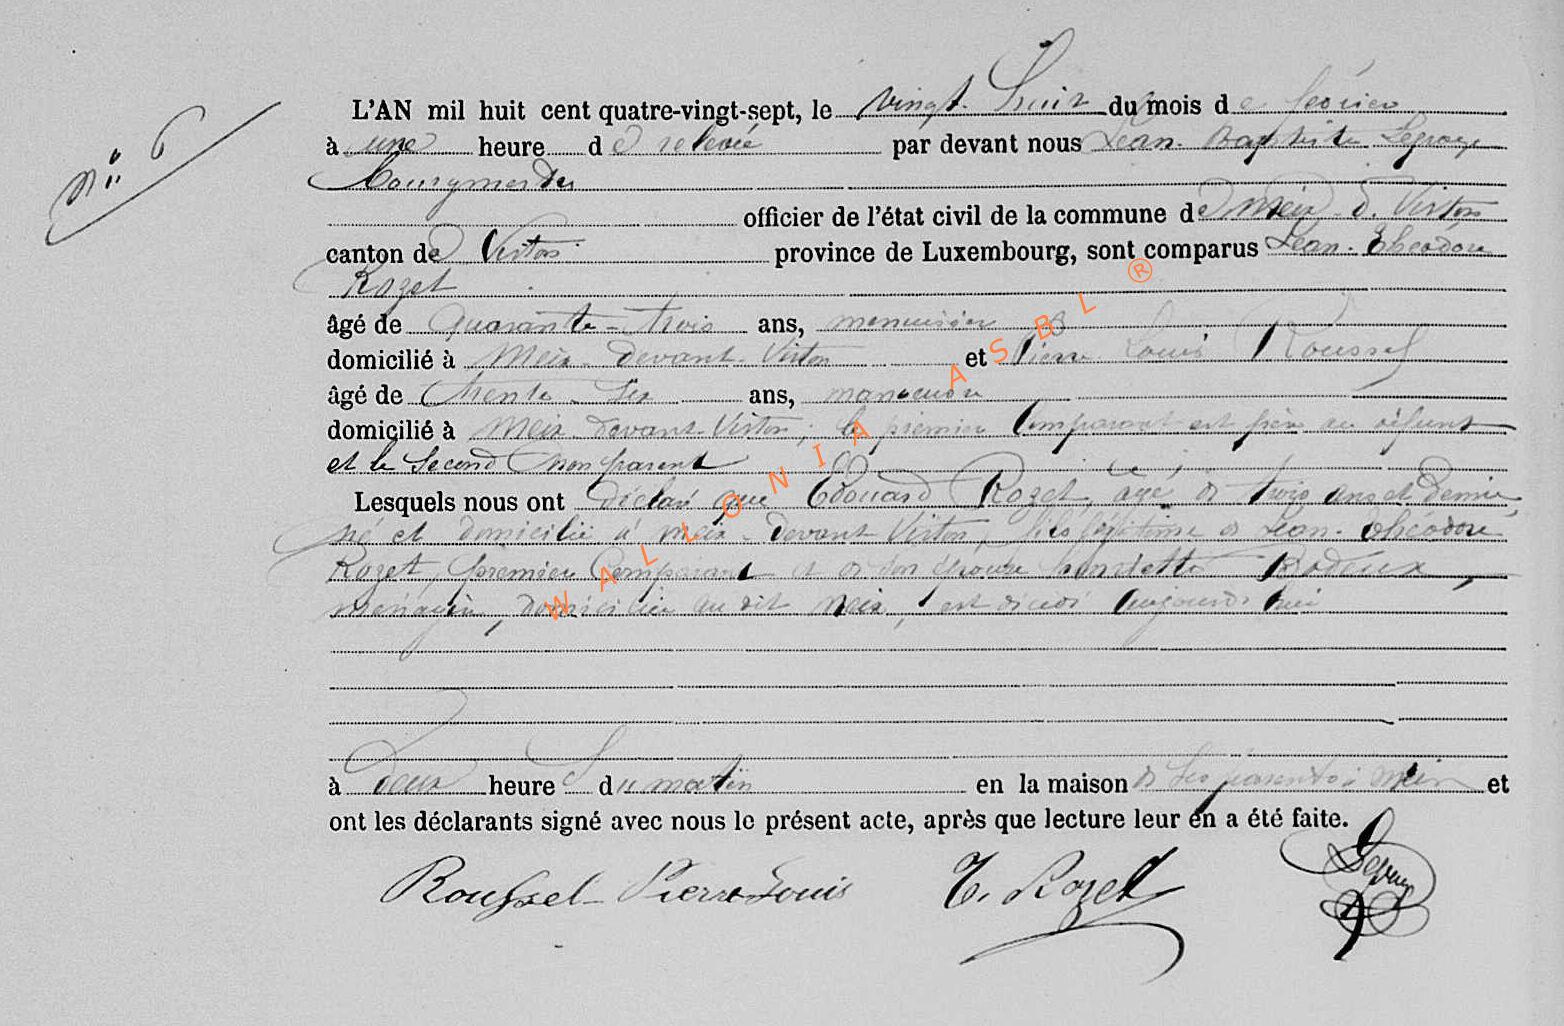 N° 6
L'AN mil huit cent quatre-vingt-sept, le vingt huit du mois de février
à une heure de relevée par devant nous Jean Baptiste Legroye
Bourgmestre
officier de l'état civil de la commune de Meix d. Virton
canton de Virton province de Luxembourg, sont comparus Jean Théodore
Rozet
âgé de quarante-trois ans, menuisier
domicilié à Meix-devant-Virton et Pierre Louis Roussel
âgé de trente six ans, manoeuvre
domicilié à Meix devant-Virton, le premier comparant est père au défunt
et le second non parent
Lesquels nous ont déclaré que Edouard Rozet, âgé de trois ans et demi,
né et domicilié à Meix devant Virton, fils légitime de Jean-Théodore
Rozet, premier comparant et de son épouse henriette
ménagère, domiciliée au dit Meix, est décédé aujourd'hui
à deux heures du matin en la maison de ses parents à Meix et
ont les déclarants signé avec nous le présent acte, après que lecture leur en a été faite.
Roussel Pierre Louis T. Rozet
WALLONIA ASBL ®